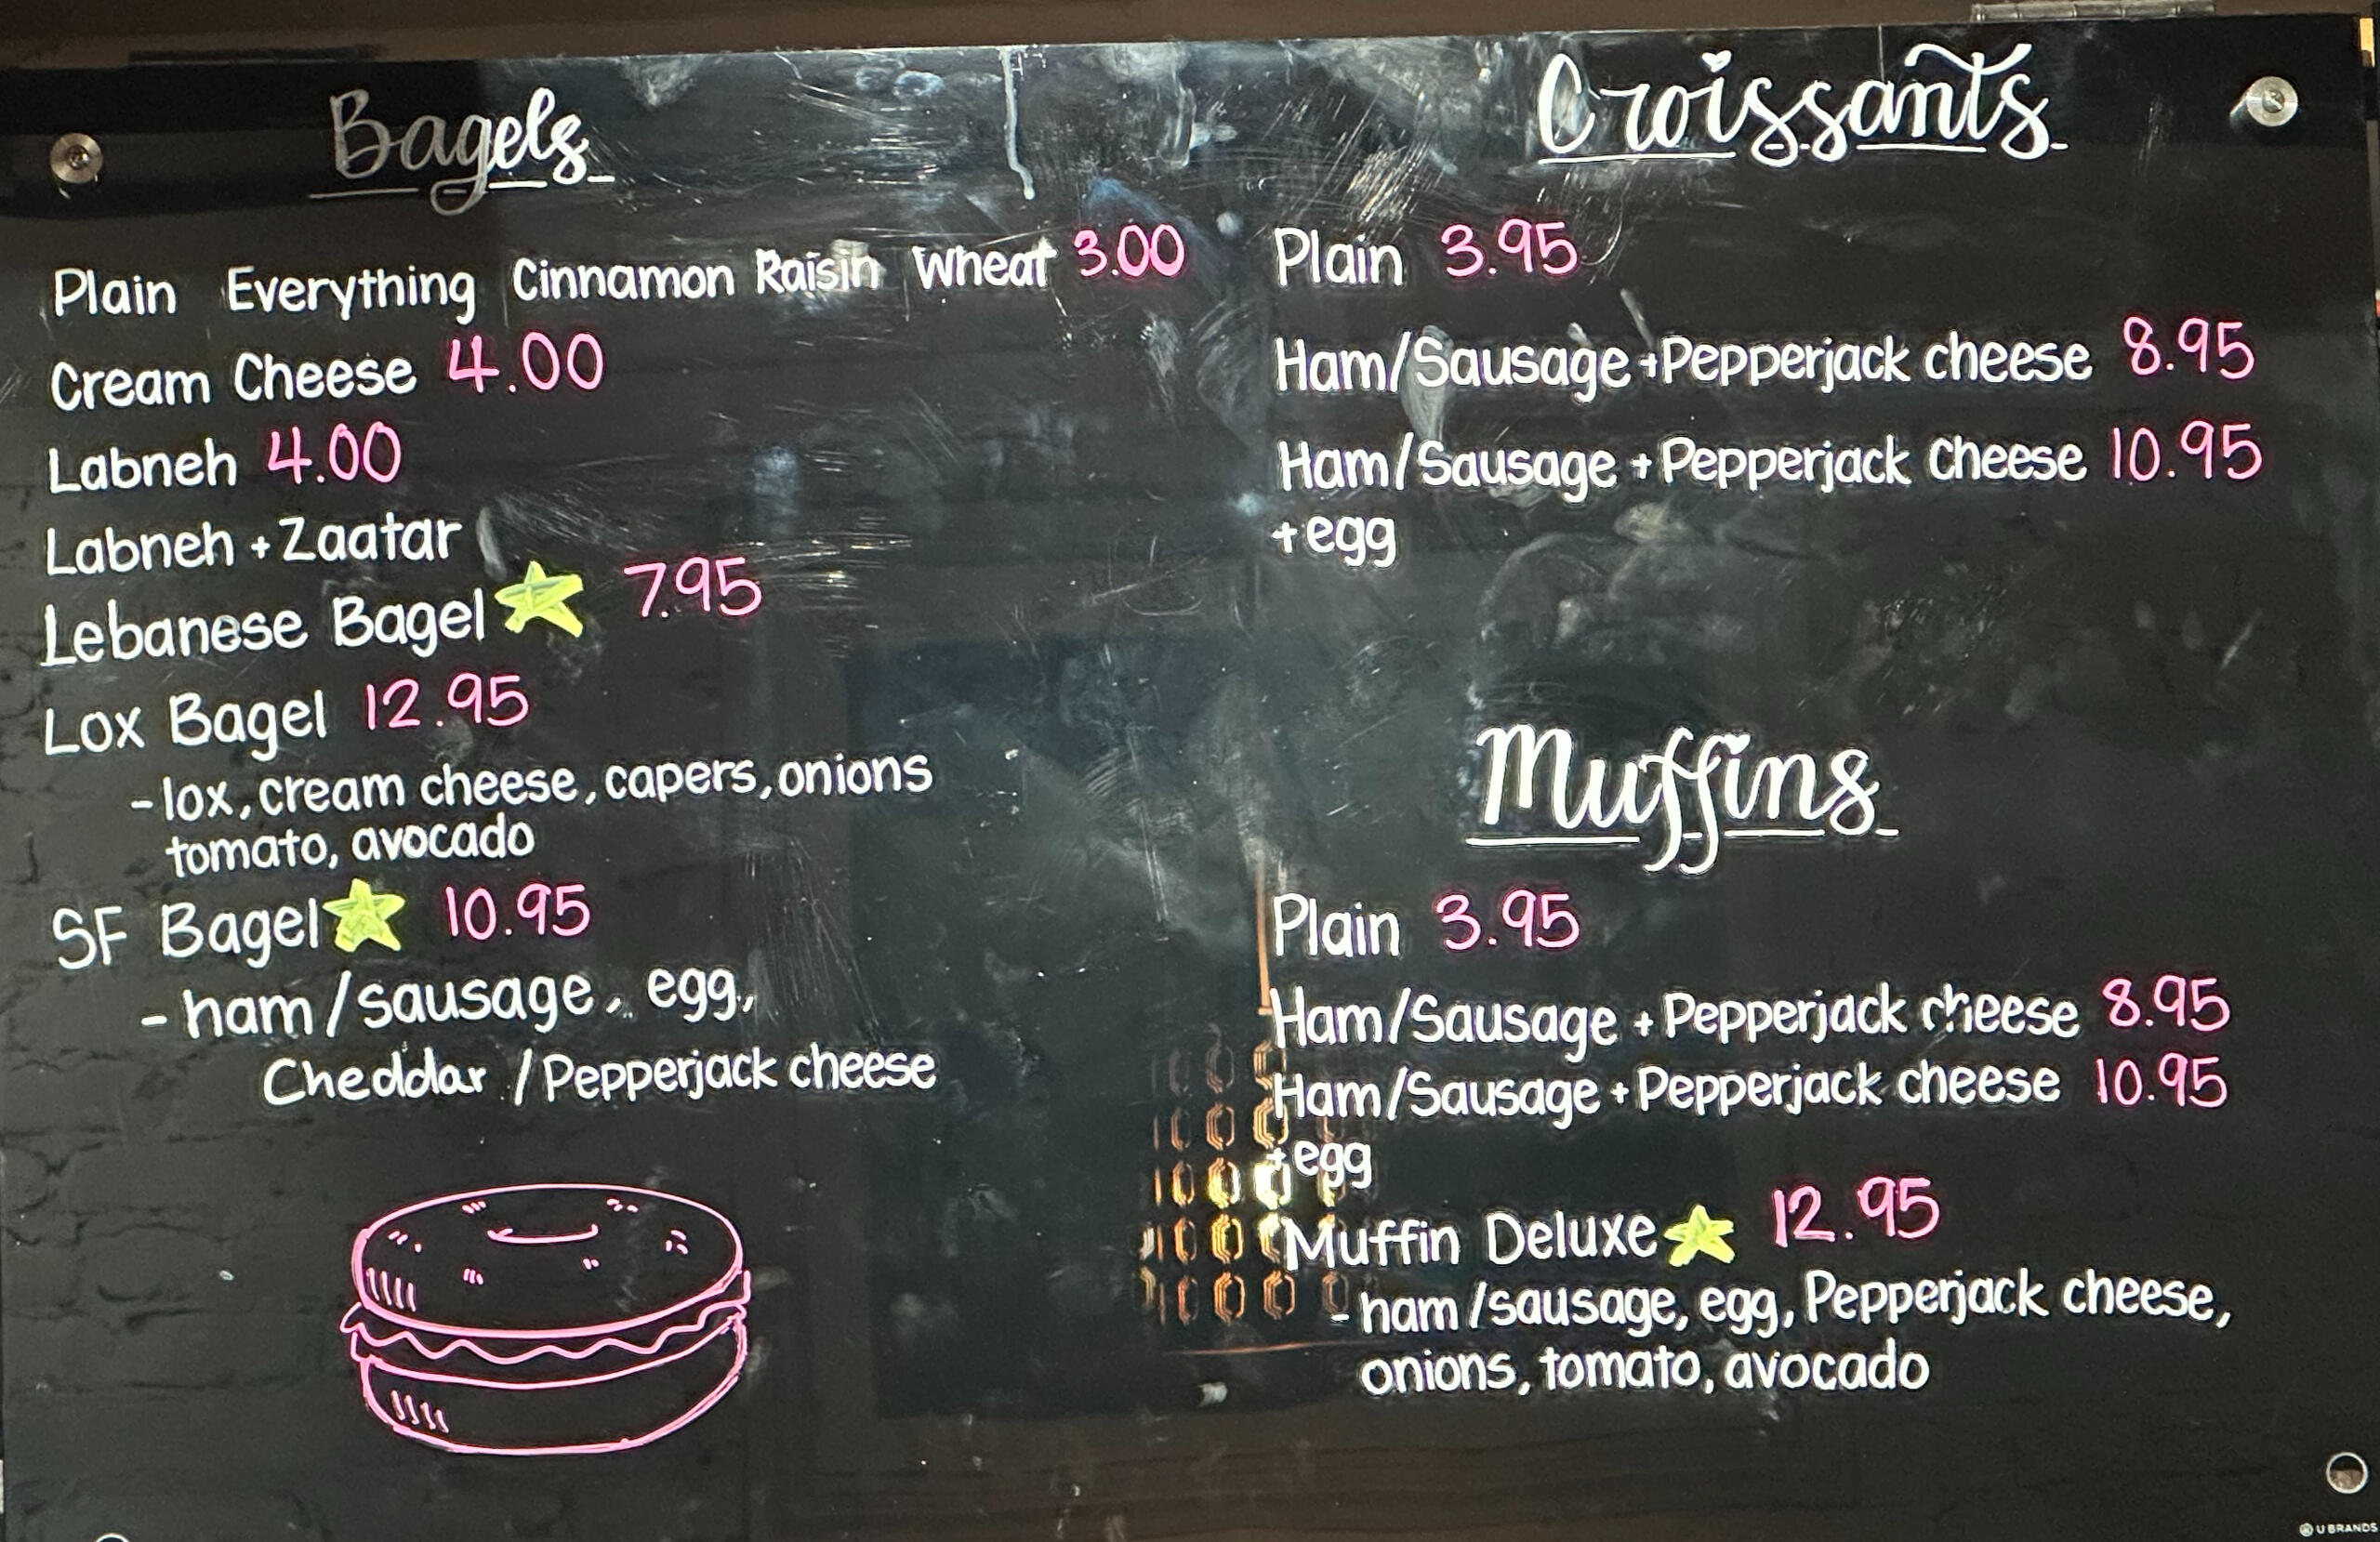 Bagels
Plain Everything Cinnamon Raisin Wheat 3.00
Cream Cheese 4.00
Labneh 4.00
Labneh + Zaatar
Lebanese Bagel 7.95
Lox Bagel 12.95
- lox, cream cheese, capers, onions
tomato, avocado
SF Bagel 10.95
- ham/sausage, egg,
Cheddar / Pepperjack cheese
Croissants
Plain 3.95
Ham/Sausage + Pepperjack cheese 8.95
Ham/Sausage + Pepperjack Cheese 10.95
+ egg
Muffins
Plain 3.95
Ham/Sausage + Pepperjack cheese 8.95
Ham/Sausage + Pepperjack cheese 10.95
+ egg
Muffin Deluxe 12.95
- ham/sausage, egg, Pepperjack cheese,
onions, tomato, avocado
U BRANDS